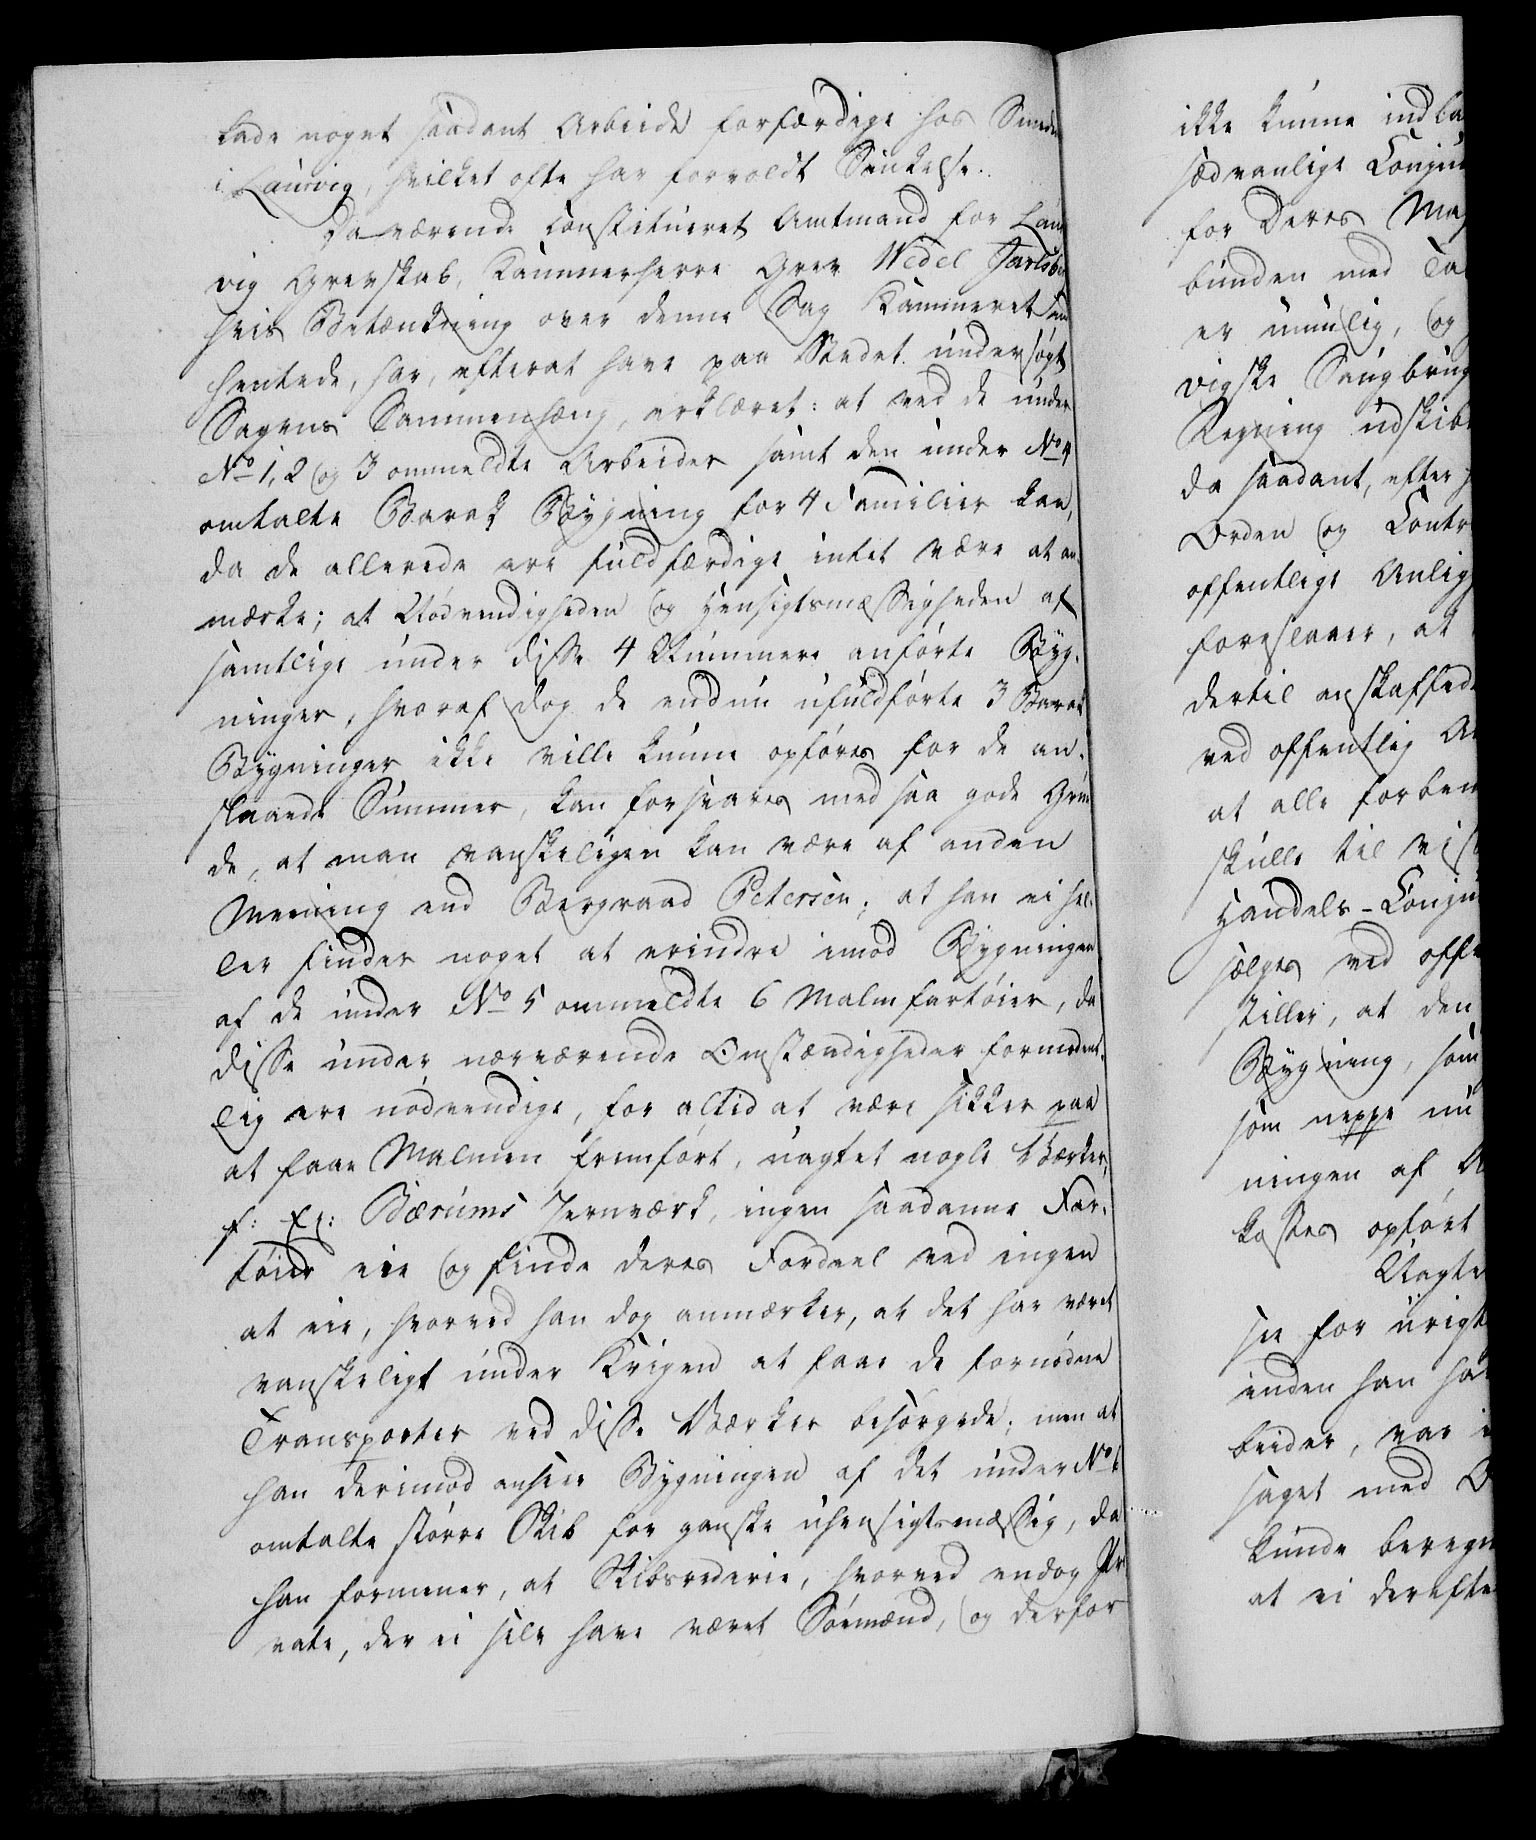 lade noget saadant Arbeide forfærdige hos Smeden
i Laurvig, hvilket ofte har forvoldt Sinkelse.
Daværende constitueret Amtmand for Laur
vig Grevskab, Kammerherre Grev Wedel Jarlsberg
hvis Betænkning over denne Sag Kammeret ind
hentede, har, efterat have paa Stedet undersøgt
Sagens Sammenhæng, erklæret: at ved de under
No 1, 2 og 3 ommeldte Arbeider samt den under No 4
omtalte Barak Bygning for 4 Familier kan,
da de allerede ere fuldfærdige intet være at an
mærke; at Nødvendigheden og Hensigtsmæssigheden af
samtlige under disse 4 Nummere anførte Byg-
ninger, hvoraf dog de endnu ufuldførte 3 Barak
Bygninger ikke ville kunne opføres for de an-
slaaede Summer, kan forsvares med saa gode Grun
de, at man vanskeligen kan være af anden
Mening end Bergraad Petersen; at han ei hel-
ler finder noget at erindre imod Bygningen
af de under No 5 ommeldte 6 Malmfartøier, da
disse under nærværende Omstændigheder formodent-
lig ere nødvendige, for altid at være sikker paa
at faae Malmen fremført, uagtet nogle Værker,
f: Ex: Bærums Jernværk, ingen saadanne Far-
tøier eie og finde deres Fordeel ved ingen
at eie, hvorved han dog anmærker, at det har været
vanskeligt under Krigen at faae de fornødne
Transporter ved disse Værker besørgede; men at
han derimod ansees Bygningen af det under No 6
omtalte større Skib for ganske uhensigtsmæssig, da
han formener, at Skibsrederie, hvorved endog Pri
vate, der ei selv have været Sømænd, og derfor
ikke kunne indla
sædvanlige Conjun
for Deres Maj
bunden med Ta
er umulig, og
vigske Saugbrug
Regning udskibe
da saadant, efter
Orden og Contr
offentlige Anlig
foreslaaer, at
dertil anskaffed
ved offentlig Au
at alle forben
skulle til
Handels-Conjun
sælges ved offe
stiller, at den
Bygning, som
som neppe nu
ningen af
kostes opført
Uagte
see for urigt
inden han ha
beider, var i
saget med
kunde beregn
at ei derefte